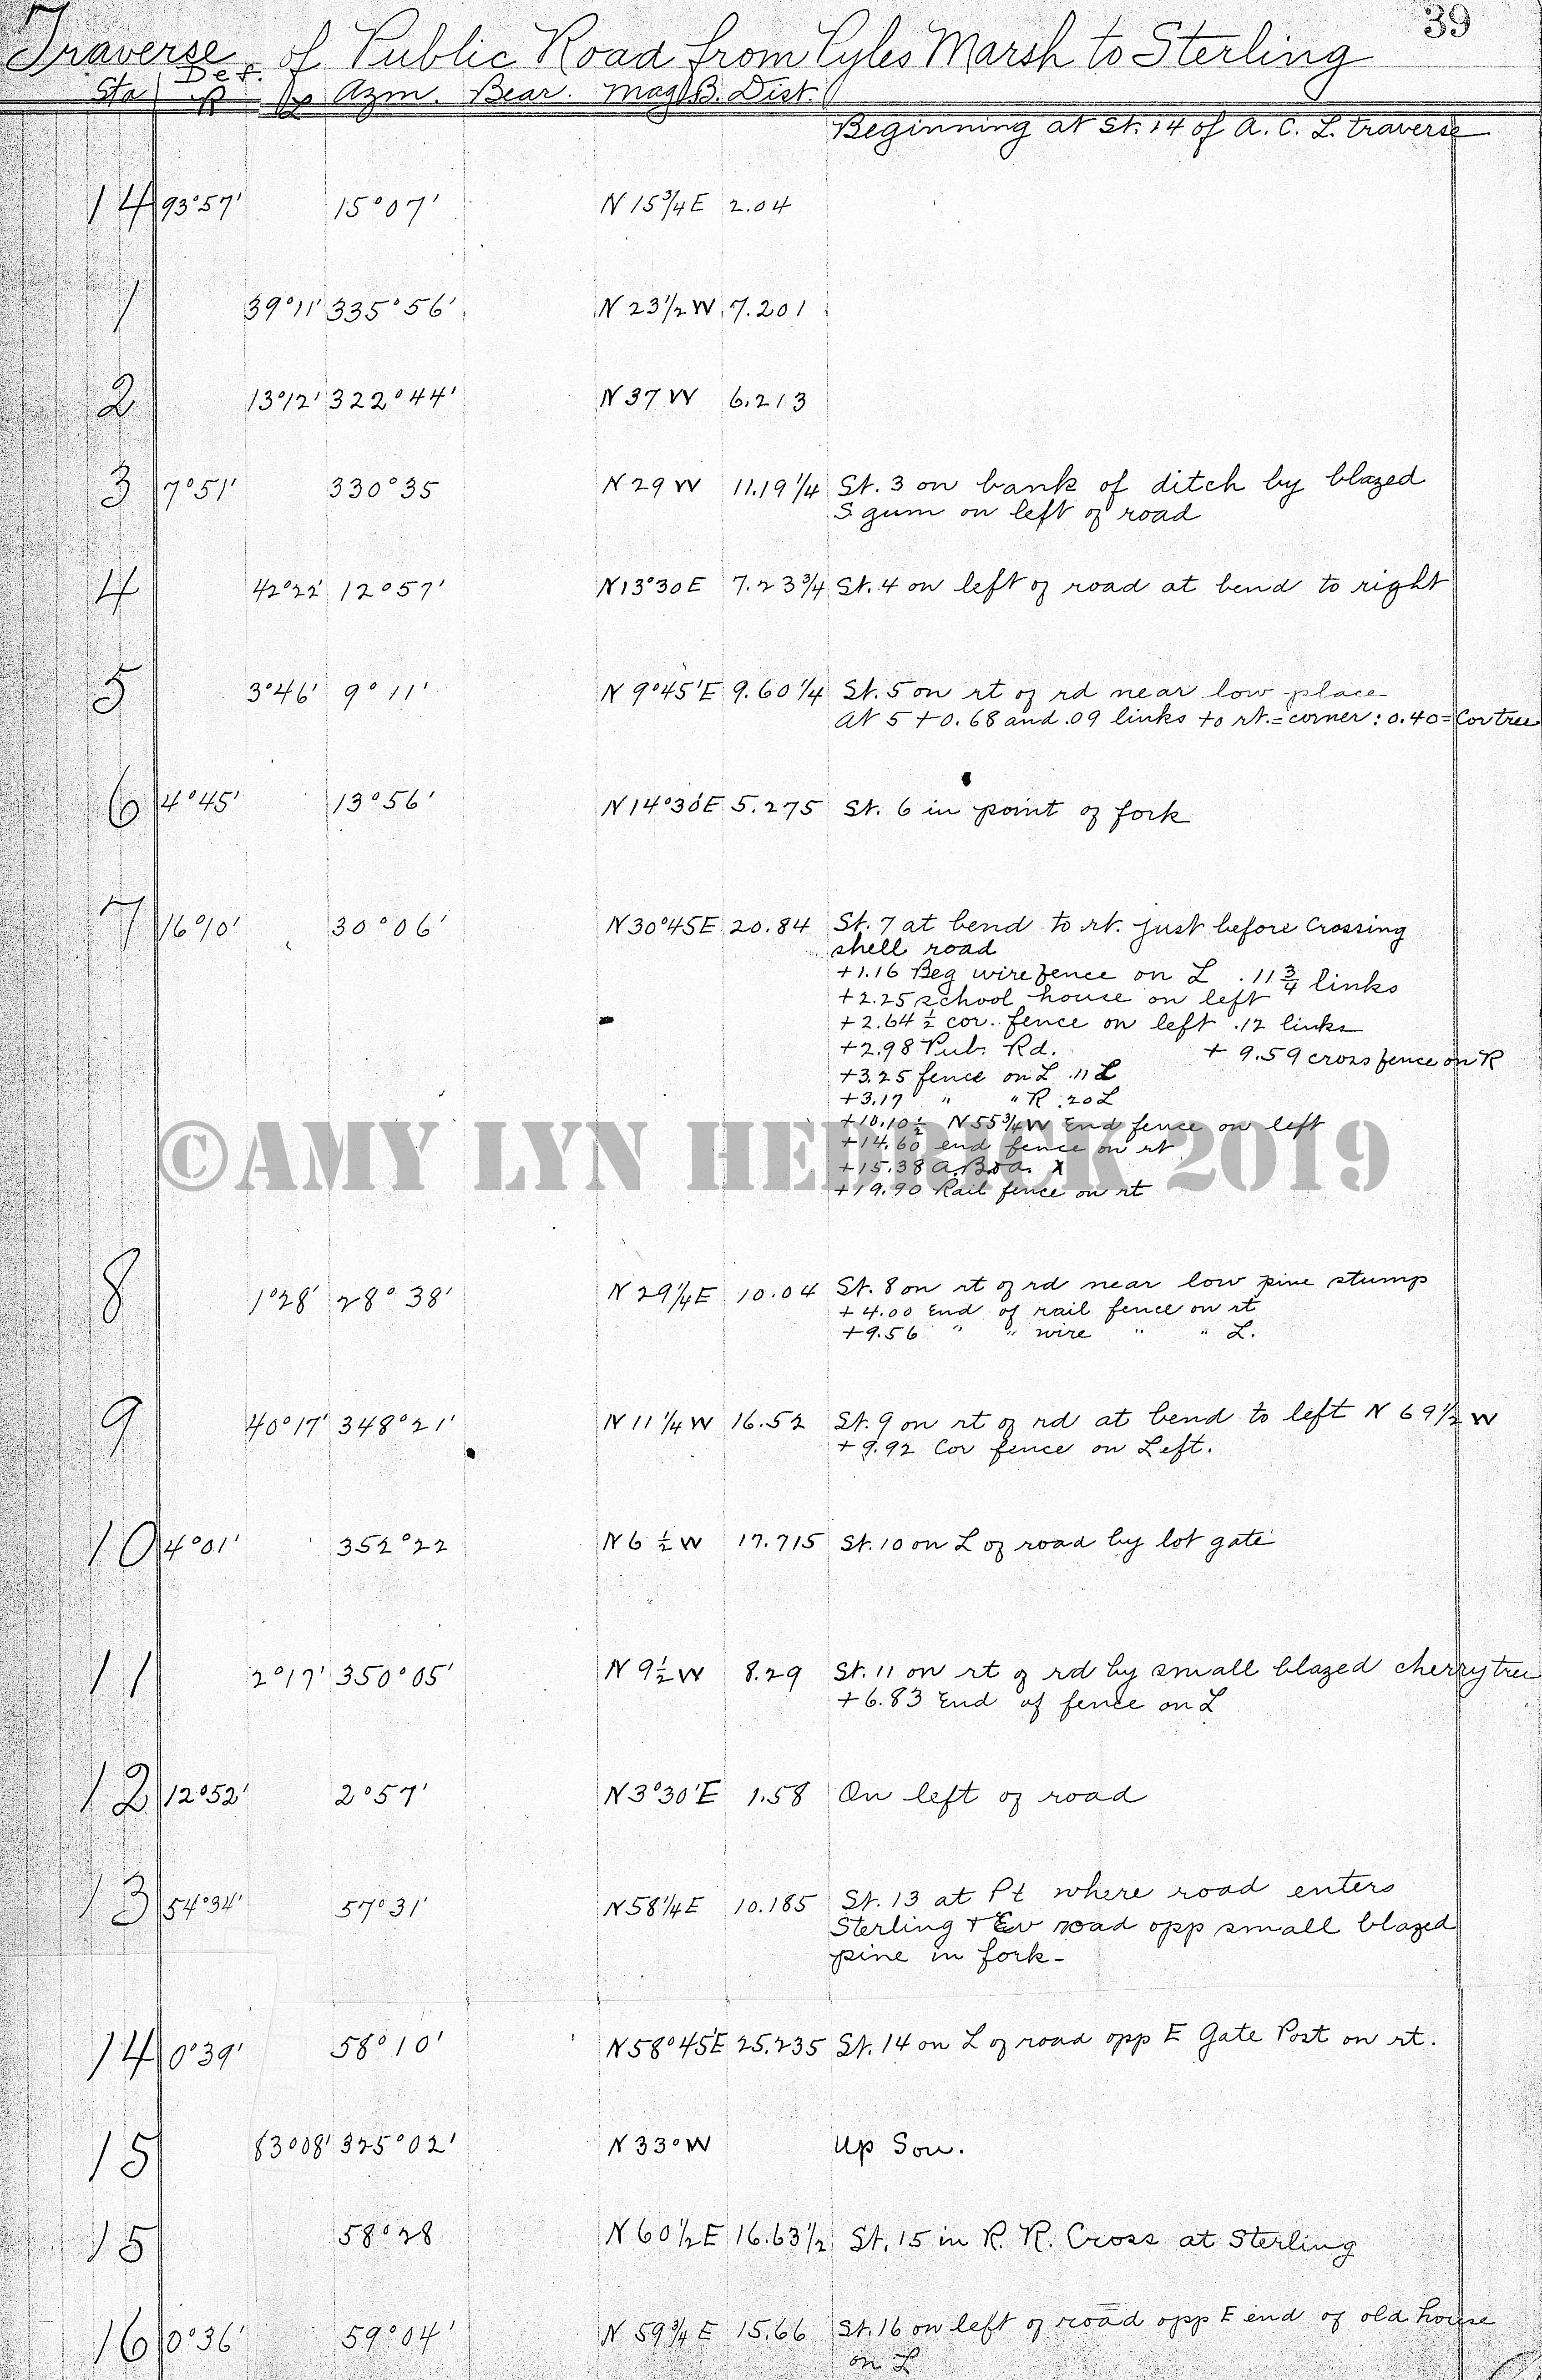 39
Traverse of Public Road from Pyles Marsh to Sterling
Sta Def. R L Azm. Bear. Mag B. Dist.
Beginning at St. 14 of A. C. L. traverse
14 93°57' 15°07' N 15 3/4 E 2.04
1 39°11' 335°56' N 23 1/2 W 7.201
2 13°12' 322°44' N 37 W 6.213
3 7°51' 330°35 N 29 W 11.19 1/4 St. 3 on bank of ditch by blazed
S gum on left of road
4 42°22' 12°57' N13°30E 7.23 3/4 St. 4 on left of road at bend to right
5 3°46' 9°11' N 9°45'E 9.60 1/4 St. 5 on rt of rd near low place
At 5 + 0.68 and .09 links to rt. = corner : 0.40 = Cor tree
6 4°45' 13°56' N14°30'E 5.275 St. 6 in point of fork
7 16°10' 30°06' N30°45E 20.84 St. 7 at bend to rt. just before Crossing
shell road
+1.16 Beg wire fence on L .11 3/4 links
+2.25 school house on left
+2.64 1/2 cor. fence on left .12 links
+2.98 Pub. Rd. + 9.59 cross fence on R
+3.25 fence on L .11 L
+3.17 " " R .20 L
+10.10 1/2 N55 3/4 W End fence on left
+14.60 end fence on rt
+15.38 A.B & A. X
+19.90 Rail fence on rt
©AMY LYN HEDRICK 2019
8 1°28' 28°38' N 29 1/4 E 10.04 St. 8 on rt of rd near low pine stump
+ 4.00 End of rail fence on rt
+9.56 " " wire " " L.
9 40°17' 348°21' N 11 1/4 W 16.52 St. 9 on rt of rd at bend to left N 69 1/2 W
+ 9.92 Cor fence on Left.
10 4°01' 352°22 N 6 1/2 W 17.715 St. 10 on L of road by lot gate
11 2°17' 350°05' N 9 1/2 W 8.29 St. 11 on rt of rd by small blazed cherry tree
+6.83 End of fence on L
12 12°52' 2°57' N3°30'E 1.58 On left of road
13 54°34' 57°31' N58 1/4 E 10.185 St. 13 at Pt where road enters
Sterling & Ev road opp small blazed
pine in fork-
14 0°39' 58°10' N58°45'E 25.235 St. 14 on L of road opp E Gate Post on rt.
15 83°08' 325°02' N 33° W Up Sou.
15 58°28 N 60 1/2 E 16.63 1/2 St. 15 in R. R. Cross at Sterling
16 0°36' 59°04' N 59 3/4 E 15.66 St. 16 on left of road opp E end of old house
on L